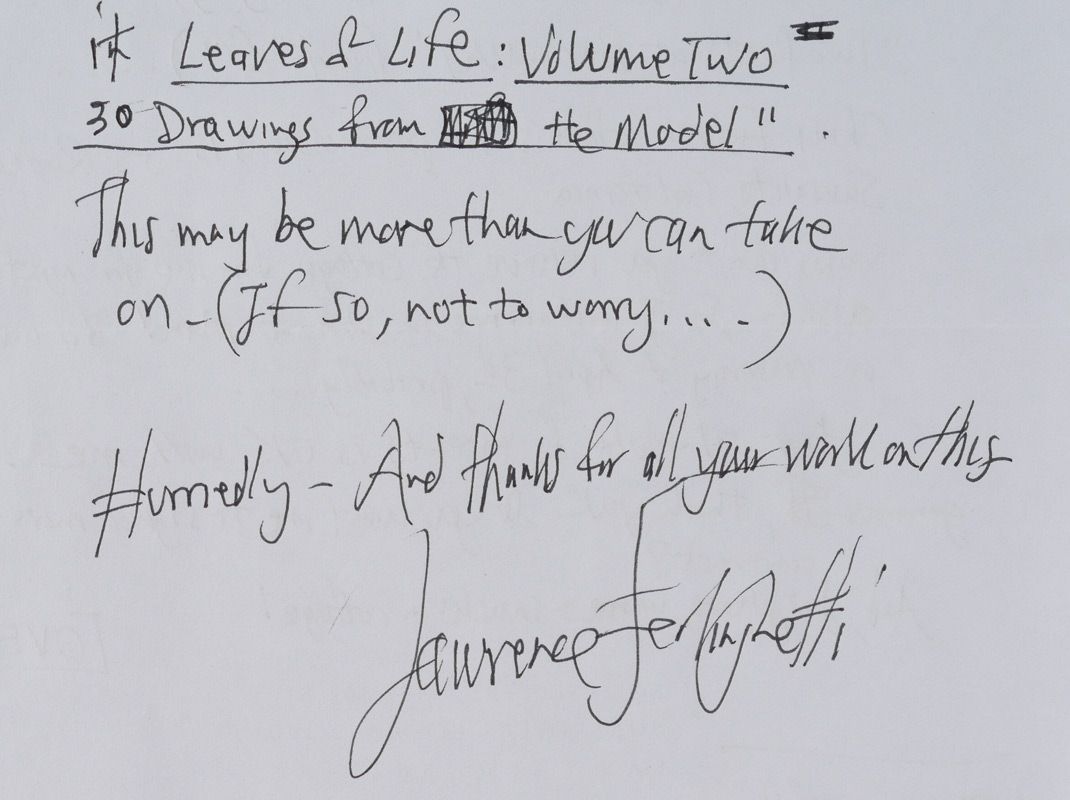 it Leaves of Life: Volume Two
30 Drawings from the Model".
This may be more than you can take
on - (If so, not to worry.... - )
Hurriedly - And thanks for all your work on this
Lawrence Ferlinghetti